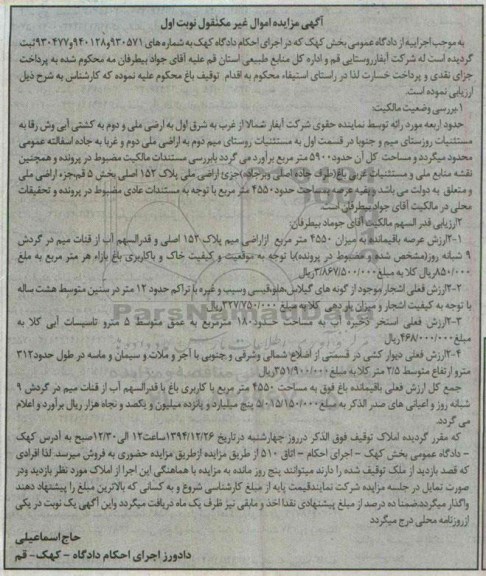 آگهی مزایده اموال غیر منقول نوبت اول
به موجب اجراییه از دادگاه عمومی بخش کهک که در اجرای احکام دادگاه کهک به شماره های ۹۳۰۵۷۱و ۹۴۰۱۲۸و۹۳۰۴۷۷ثبت
گردیده است له شرکت آبفار روستایی قم و اداره کل منابع طبیعی استان قم علیه آقای جواد بیطرفان مه محکوم شده به پرداخت
جزای نقدی و پرداخت خسارت لذا در راستای استیفاء محکوم به اقدام توقیف باغ محکوم علیه نموده که کارشناس به شرح ذیل
ارزیابی نموده است.
۱.بررسی وضعیت مالکیت:
حدود اربعه مورد رائه توسط نماینده حقوی شرکت آبفار شمالا از غرب به شرق اول به ارضی ملی و دوم به کشتی آبی وش رقا به
مستثنیات روستای میم و جنوبا در قسمت اول به مستثنیات روستای میم دوم به اراضی ملی دوم و غربا به جاده اسفالته عمومی
محدود میگردد و مساحت کل آن حدود ۵۹۰۰ متر مربع برآورد می گردد بابررسی مستندات مالکیت مضبوط در پرونده و همچنین
نقشه منابع ملی و مستثنیات غربی باغ(طرف جاده اصلی ویرجاده)جزئ اراضی ملی پلاک ۱۵۲ اصلی بخش ۵ قم جزء اراضی ملی
و متعلق به دولت می باشد و بقیه عرصه به مساحت حدود ۴۵۵۰ متر مربع با توجه به مستندات عادی مضبوط در پرونده و تحقیقات
محلی در مالکیت آقای جواد بیطرفان است.
۲.ارزیابی قدر السهم مالکیت آقای جوماد بیطرفان:
۲-۱ارزش عرصه باقیمانده به میزان ۴۵۵۰ متر مربع ازاراضی میم پلاک ۱۵۲ اصلی و قدرالسهم آب از قنات میم در گردش
۹ شبانه روز(مشخص شده و مضبوط در پرونده)با توجه به موقعیت و کیفیت خاک و باکاربری باغ بازاء هر متر مربع به مبلغ
۸۵۰/۰۰۰ریال کلا به مبلغ۳/۸۶۷/۵۰۰/۰۰۰ریال
۲-۲ارزش فعلی اشجار موجود از گونه های گیلاس،هلو،قیسی وسیب و غیره با تراکم حدود ۱۲ متر در سنین متوسط هشت ساله
با توجه به کیفیت اشجار و میزان بار دهی کلا به مبلغ ۳۲۷/۷۵۰/۰۰۰ریال
۲-۳ارزش فعلی استخر ذخیره آب به مساحت حدود۱۸۰ مترمربع به عمق متوسط ۵ مترو تاسیسات آبی کلا به
مبلغ۴۶۸/۰۰۰/۰۰۰ریال
۲-۴ارزش فعلی دیوار کشی در قسمتی از اضلاع شمالی وشرقی و جنوبی با آجر و ملات و سیمان و ماسه در طول حدود۳۱۲
مترو ارتفاع متوسط ۲/۵ متر کلا به مبلغ ۳۵۱/۹۰۰/۰۰۰ریال
جمع کل ارزش فعلی باقیمانده باغ فوق به مساحت ۴۵۵۰ متر مربع با کاربری باغ با قدرالسهم آب از قنات میم در گردش ۹
شبانه روز و اعیانی های صدر الذکر به مبلغ۵/۰۱۵/۱۵۰/۰۰۰ پنج میلیارد و پانزده میلیون و یکصد و نجاه هزار ریال برآورد و اعلام
می گردد.
که مقرر گردیده املاک توقیف فوق الذکر درروز چهارشنبه درتاریخ ۱۳۹۴/۱۲/۲۶ساعت۱۲ الی۱۲/۳۰صبح به آدرس کهک
- دادگاه عمومی بخش کهک - اجرای احکام - اتاق ۵۱۰ از طریق مزایده ازطریق مزایده حضوری به فروش میرسد. لذا افرادی
که قصد بازدید از ملک توقیف شده را دارند میتوانند پنج روز مانده به مزایده با هماهنگی این اجرا از املاک مورد نظر بازدید ودر
صورت تمایل در جلسه مزایده شرکت نمایندقیمت پایه از مبلغ کارشناسی شروع و به کسانی که بالاترین مبلغ را پیشنهاد دهند
واگذار میگرددضمنا ده درصد از مبلغ پیشنهادی نقدا اخذ و مابقی نیز ظرف یک ماه دریافت میگردد واین آگهی یک نوبت در یکی
ازروزنامه محلی درج میگردد
حاج اسماعیلی
دادورز اجرای احکام دادگاه - کهک- قم